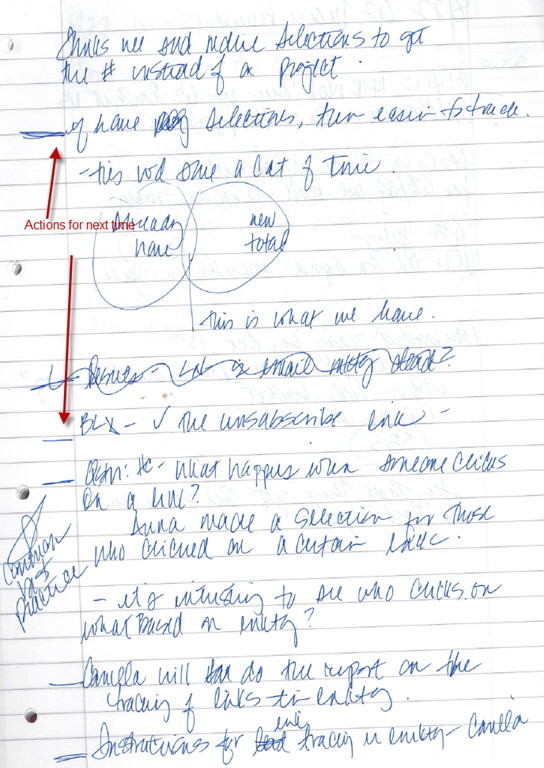 and make selections to get
the # instead of a project.
if have selections, then easier to track.
- this wd save a lot of time.
Actions for next time
Already
have
new
total
this is what we have.
BLX - ✓ the unsubscribe link -
what happens when someone clicks
on a link?
Anna made a selection for those
who clicked on a certain link.
common
best
practice
- it's interesting to see who clicks on
what based on entity?
Camella will do the report on the
tracing of links to entity.
Instructions for link tracing in entity - Camella